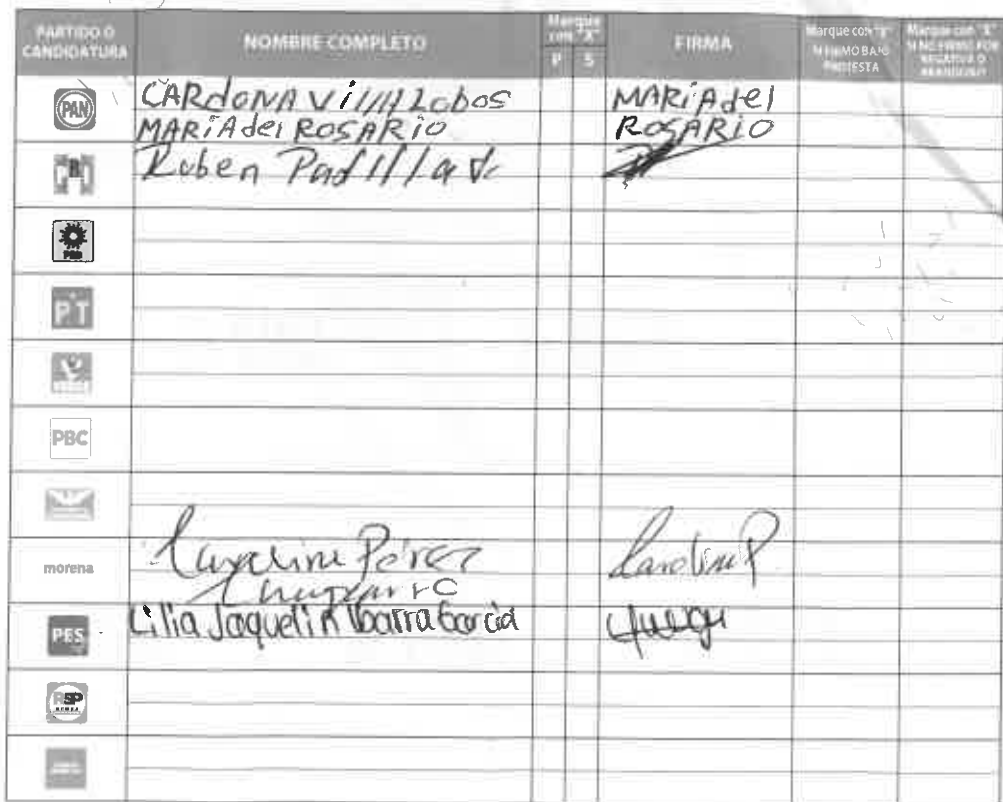 PARTIDO O
CANDIDATURA
NOMBRE COMPLETO
Marque
con "X"
P S
FIRMA
Marque con "X"
SI FIRMÓ BAJO
PROTESTA
Marque con "X"
SI NO FIRMÓ POR
NEGATIVA O
ABANDONO
PAN
CARdONA VillAlobos
MARíA del ROSARIO
MARíA del
ROSARIO
PRI
Ruben Padilla V.
PRD
PT
VERDE
PBC
morena
Carolina Pérez
Carolina P
PES
Lilia Jaquelin Ibarra García
RSP